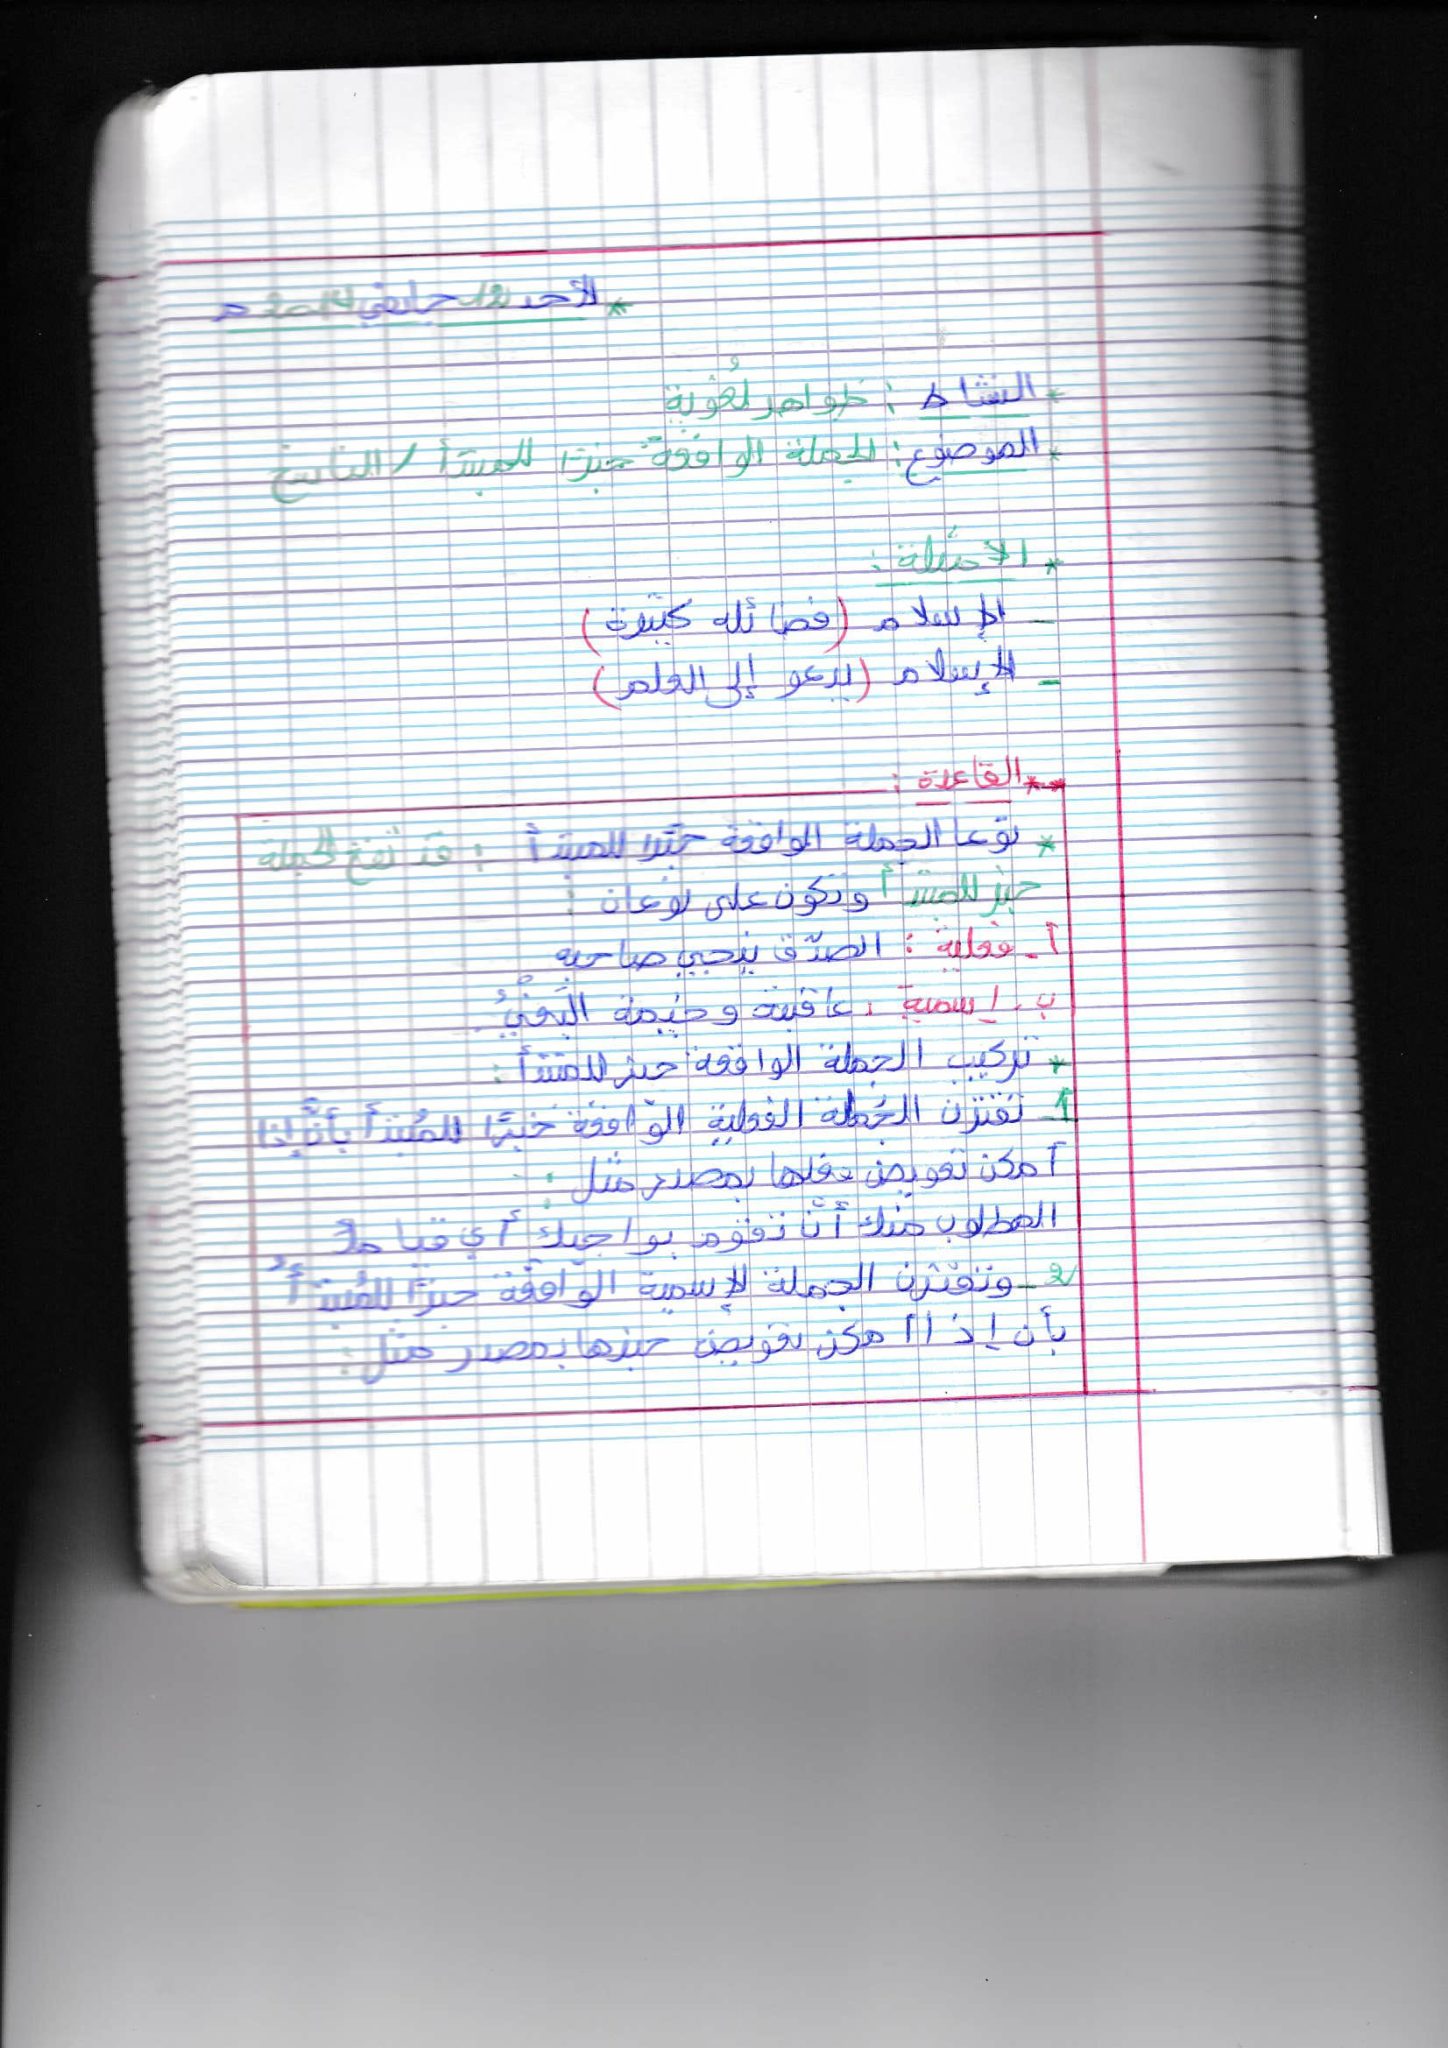 * الأحد 12 جانفي 2014 م
* النشاط : ظواهر لُغوية
* الموضوع : الجملة الواقعة خبرًا للمبتدأ / الناسخ
* الأمثلة :
- الإسلام (فضائله كثيرة)
- الإسلام (يدعو إلى العلم)
** القاعدة :
* نوعا الجملة الواقعة خبرا للمبتدأ : قد تقع الجملة
خبر للمبتدأ وتكون على نوعان :
أ - فعلية : الصدق ينجي صاحبه
ب - إسمية : عاقبته وخيمة البَغْيُ
* تركيب الجملة الواقعة خبر للمبتدأ :
1- تقترن الجُملة الفعلية الوَاقعَة خَبَرًا للمُبتدأ بأنْ إذا
أمكن تعويض فعلها بمصدر مثل :
المطلوب منك أنْ تقوم بواجبك أي قيامك
2- وتقترن الجملة الإسمية الوَاقعَة خبرًا للمُبتدأ
بأن إذا أمكن تعويض خبرها بمصدر مثل :